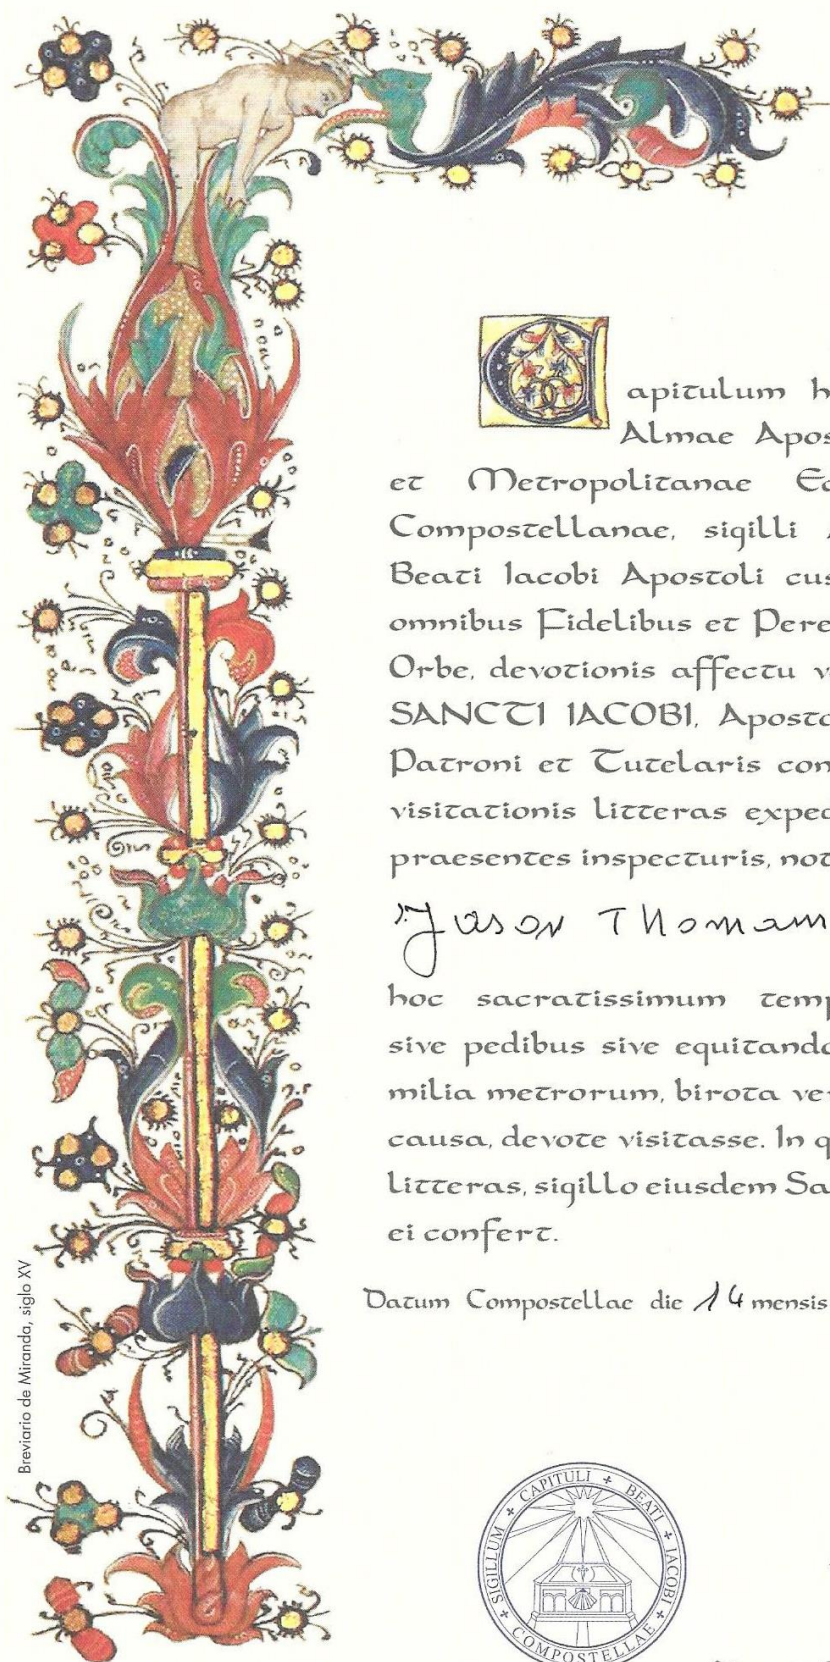 Capitulum h
Almae Apos
et Metropolitanae Ec
Compostellanae, sigilli
Beati Iacobi Apostoli cus
omnibus Fidelibus et Pere
Orbe, devotionis affectu v
SANCTI IACOBI, Aposto
Patroni et Tutelaris con
visitationis litteras exped
praesentes inspecturis, not
Jason Thomam
hoc sacratissimum temp
sive pedibus sive equitando
milia metrorum, birota ver
causa, devote visitasse. In q
litteras, sigillo eiusdem Sa
ei confert.
Datum Compostellae die 14 mensis
Breviario de Miranda, siglo XV
SIGILLUM + CAPITULI + BEATI + IACOBI + COMPOSTELLAE +